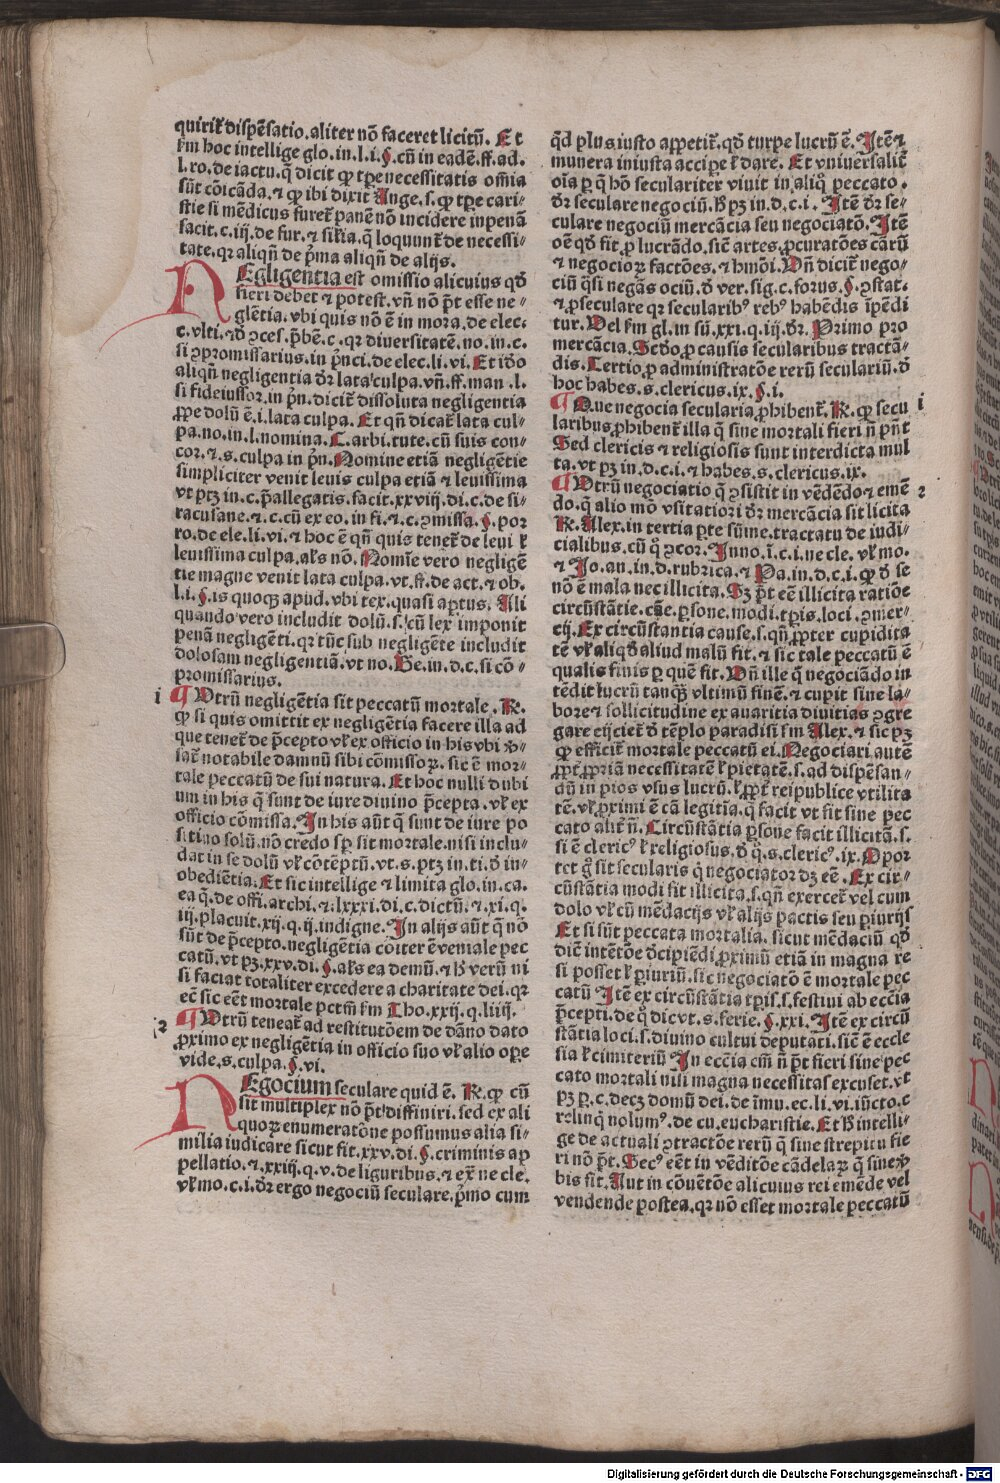 quirit̃ dispẽsatio.aliter nõ faceret licitũ. Et
ẜm hoc intellige glo.in.l.i.§.cũ in eadẽ.ff.ad.
l.ro.de iactu.q̃ dicit ꝙ tꝑe necessitatis omnia
sũt cõicãda.⁊ ꝙ ibi dixit Ange.s.ꝙ tꝑe cari-
stie si mẽdicus furet̃ panẽ nõ incidere in penã
facit.c.iij.de fur.⁊ sil̓ia.q̃ loquunt̃ de necessi-
tate.qꝛ aliqñ de p̃ma aliqñ de alijs.
NEgligentia est omissio alicuius qd̓
fieri debet ⁊ potest.vñ nõ p̃t esse ne-
glẽtia.vbi quis nõ ẽ in mora.de elec.
c.vlti.⁊ d̓ ꝯces.p̃bẽ.c.qꝛ diuersitatẽ.no.in.c.
si ꝯpromissarius.in princi.de elec.li.vi. Et id̓o
aliqñ negligentia dr̃ lata culpa.vñ.ff.man.l.
si fideiussor.in prin.dicit̃ dissoluta negligentia
ꝓpe dolũ ẽ.i.lata culpa. Et qñ dicat̃ lata cul-
pa.no.in.l.nomina.C.arbi.tute.cũ suis con-
cor.⁊.s.culpa in prin. Nomine etiã negligẽtie
simpliciter venit leuis culpa etiã ⁊ leuissima
vt ptꝫ in.c.p̃allegatis.facit.xxviij.di.c.de si-
racusane.⁊.c.cũ ex eo.in fi.⁊.c.ꝯmissa.§.por
ro.de ele.li.vi.⁊ hoc ẽ qñ quis tenet̃ de leui ł
leuissima culpa.al̓s nõ. Nomĩe vero negligẽ
tie magne venit lata culpa.vt.ff.de act.⁊ ob.
l.i.§.is quoqꝫ apud.vbi tex.quasi aꝑtus. Ali
quando vero includit dolũ.s.cũ lex imponit
penã negligẽti.qꝛ tũc sub negligẽte includit
dolosam negligentiã.vt no. Ge.in.d.c.si cõ-
promissarius.
i ¶ Utrũ negligẽtia sit peccatũ mortale. R̃.
ꝙ si quis omittit ex negligẽtia facere illa ad
que tenet̃ de p̃cepto vl̓ ex officio in his vbi v̓-
sat̃ notabile damnũ sibi cõmissoꝝ.sic ẽ mor-
tale peccatũ de sui natura. Et hoc nulli dubi
um in his q̃ sunt de iure diuino p̃cepta.vl̓ ex
officio cõmissa. In his aũt q̃ sunt de iure po
sitiuo solũ.nõ credo sꝑ sit mortale.nisi inclu-
dat in se dolũ vl̓ cõtẽptũ.vt.s.ptꝫ in.ti.d̓ in-
obediẽtia. Et sic intellige ⁊ limita glo.in.ca.
ea q̃.de offi.archi.⁊.lxxxi.di.c.dictũ.⁊.xi.q.
iij.placuit.xij.q.ij.indigne. In alijs aũt q̃ nõ
sũt de p̃cepto.negligẽtia cõiter ẽ veniale pec
catũ.vt pꝫ.xxv.di.§.al̓s ea demũ.⁊ h̓ verũ ni
si faciat totaliter excedere a charitate dei.qꝛ
ec̃ sic eẽt mortale pctm̃ ẜm Tho.xxij.q.liiij.
2 ¶ Utrũ teneat̃ ad restitutõem de dãno dato
ꝓximo ex negligẽtia in officio suo vl̓ alio oꝑe
vide.s.culpa.§.vi.
NEgocium seculare quid ẽ. R̃.ꝙ cũ
sit multiplex nõ p̃t diffiniri.sed ex ali
quoꝝ enumeratõne possumus alia si-
milia iudicare sicut fit.xxv.di.§.criminis aꝑ
pellatio.⁊.xxiij.q.v.de liguribus.⁊ ext̃ ne cle.
vl̓ mo.c.i.dr̃ ergo negociũ seculare.p̃mo cum
qd̃ plus iusto appetit̃.qd̓ turpe lucrũ ẽ. Itẽ ⁊
munera iniusta accipe ł dare. Et vniuersalit̃
oĩa ꝑ q̃ hõ seculariter viuit in aliq̊ peccato.
dr̃ seculare negociũ.vt pꝫ in.d.c.i. Itẽ dr̃ se-
culare negociũ mercãcia seu negociatõ. Itẽ
oẽ qd̓ fit.ꝓ lucrãdo.sicẽ artes.ꝓcuratões carũ
⁊ negocioꝝ factões.⁊ hmõi. Dñ dicit̃ nego-
ciũ q̃si negãs ociũ.d̓ ver.sig.c.forus.§.ꝯstat.
⁊.ꝓ seculare qꝛ secularibꝰ rebꝰ habẽdis ĩpedi
tur. Uel ẜm gl.in sũ.xxi.q.iij.dr̃. Primo pro
mercãcia. Scd̓o.ꝓ causis secularibus tractã-
dis. Tertio.ꝓ administratõe rerũ seculariũ.d̓
hoc habes.s.clericus.ix.§.i.
¶ Que negocia secularia ꝓhibent̃. R̃.ꝙ secu i
laribus ꝓhibent̃ illa q̃ sine mortali fieri ñ p̃nt
Sed clericis ⁊ religiosis sunt interdicta mul
ta.vt pꝫ in.d.c.i.⁊ habes.s.clericus.ix.
¶ Utrũ negociatio q̃ ꝯsistit in vẽdẽdo ⁊ emẽ 2
do.q̃ alio mõ vsitatiori dr̃ mercãcia sit licita
R̃. Alex.in tertia ꝑte sũme.tractatu de iudi-
cialibus.cũ q̊ ꝯcor. Inno.ĩ.c.i.ne cle.vl̓ mo.
⁊ Jo.an.in.d.rubrica.⁊ Pa.in.d.c.i.ꝙ d̓ se
nõ ẽ mala nec illicita. Sꝫ p̃t eẽ illicita ratiõe
circũstãtie.cãe.ꝑsone.modi.tꝑis.loci.ꝯmer-
cij. Ex circũstantia cause.s.qñ ꝓpter cupidita
tẽ vl̓ aliqd̓ aliud malũ fit.⁊ sic tale peccatũ ẽ
qualis finis ꝑ quẽ fit. Uñ ille q̊ negociãdo in
tẽdit lucrũ tanqꝫ vltimũ finẽ.⁊ cupit sine la-
bore ⁊ sollicitudine ex auaritia diuitias ꝯgre
gare eijciet̃ d̓ tẽplo paradisi ẜm Alex.⁊ sic pꝫ
ꝙ efficit̃ mortale peccatũ ei. Negociari autẽ
ꝓpt̃ ꝓpriã necessitatẽ ł pietatẽ.s.ad dispẽsan-
dũ in pios vsus lucrũ.ł ꝓpt̃ reipublice vtilita
tẽ.vl̓ ꝓximi ẽ cã legitĩa.q̃ facit vt fit sine pec
cato alit̃ ñ. Circũstãtia ꝑsone facit illicitã.s.
si ẽ clericꝰ ł religiosus.d̓ q̊.s.clericꝰ.ix. Opor
tet g̊ sit secularis q̊ negociator dꝫ eẽ. Ex cir-
cũstãtia modi fit illicita.s.qñ exercet̃ vel cum
dolo vl̓ cũ mẽdacijs vl̓ alijs pactis seu ꝑiurijs
Et si sũt peccata mortalia.sicut mẽdaciũ qd̓
dic̃ intẽtõe d̓cipiẽdi ꝓximũ etiã in magna re
si posset ł ꝑiuriũ.sic negociatõ ẽ mortale pec
catũ Itẽ ex circũstãtia tꝑis.s.festiui ab eccĩa
p̃cepti.de q̊ dic̃ vt.s.ferie.§.xxi. Itẽ ex circũ
stãtia loci.s.diuino cultui deputati.sicẽ ẽ eccle
sia ł cimiteriũ In eccĩa cm̃ ñ p̃t fieri sine pec
cato mortali nisi magna necessitas excuset.vt
pꝫ ꝑ.c.decꝫ domũ dei.de ĩmu.ec.li.vi.iũcto.c
relinq̃ nolumꝰ.de cu.eucharistie. Et h̓ intelli-
ge de actuali ꝯtractõe rerũ q̃ sine strepitu fie
ri nõ p̃t. Secꝰ eẽt in vẽditõe cãdelaꝝ q̃ sine v̓
bis fit. Aut in cõuẽtõe alicuius rei emẽde vel
vendende postea.qꝛ nõ esset mortale peccatũ
Digitalisierung gefördert durch die Deutsche Forschungsgemeinschaft - DFG